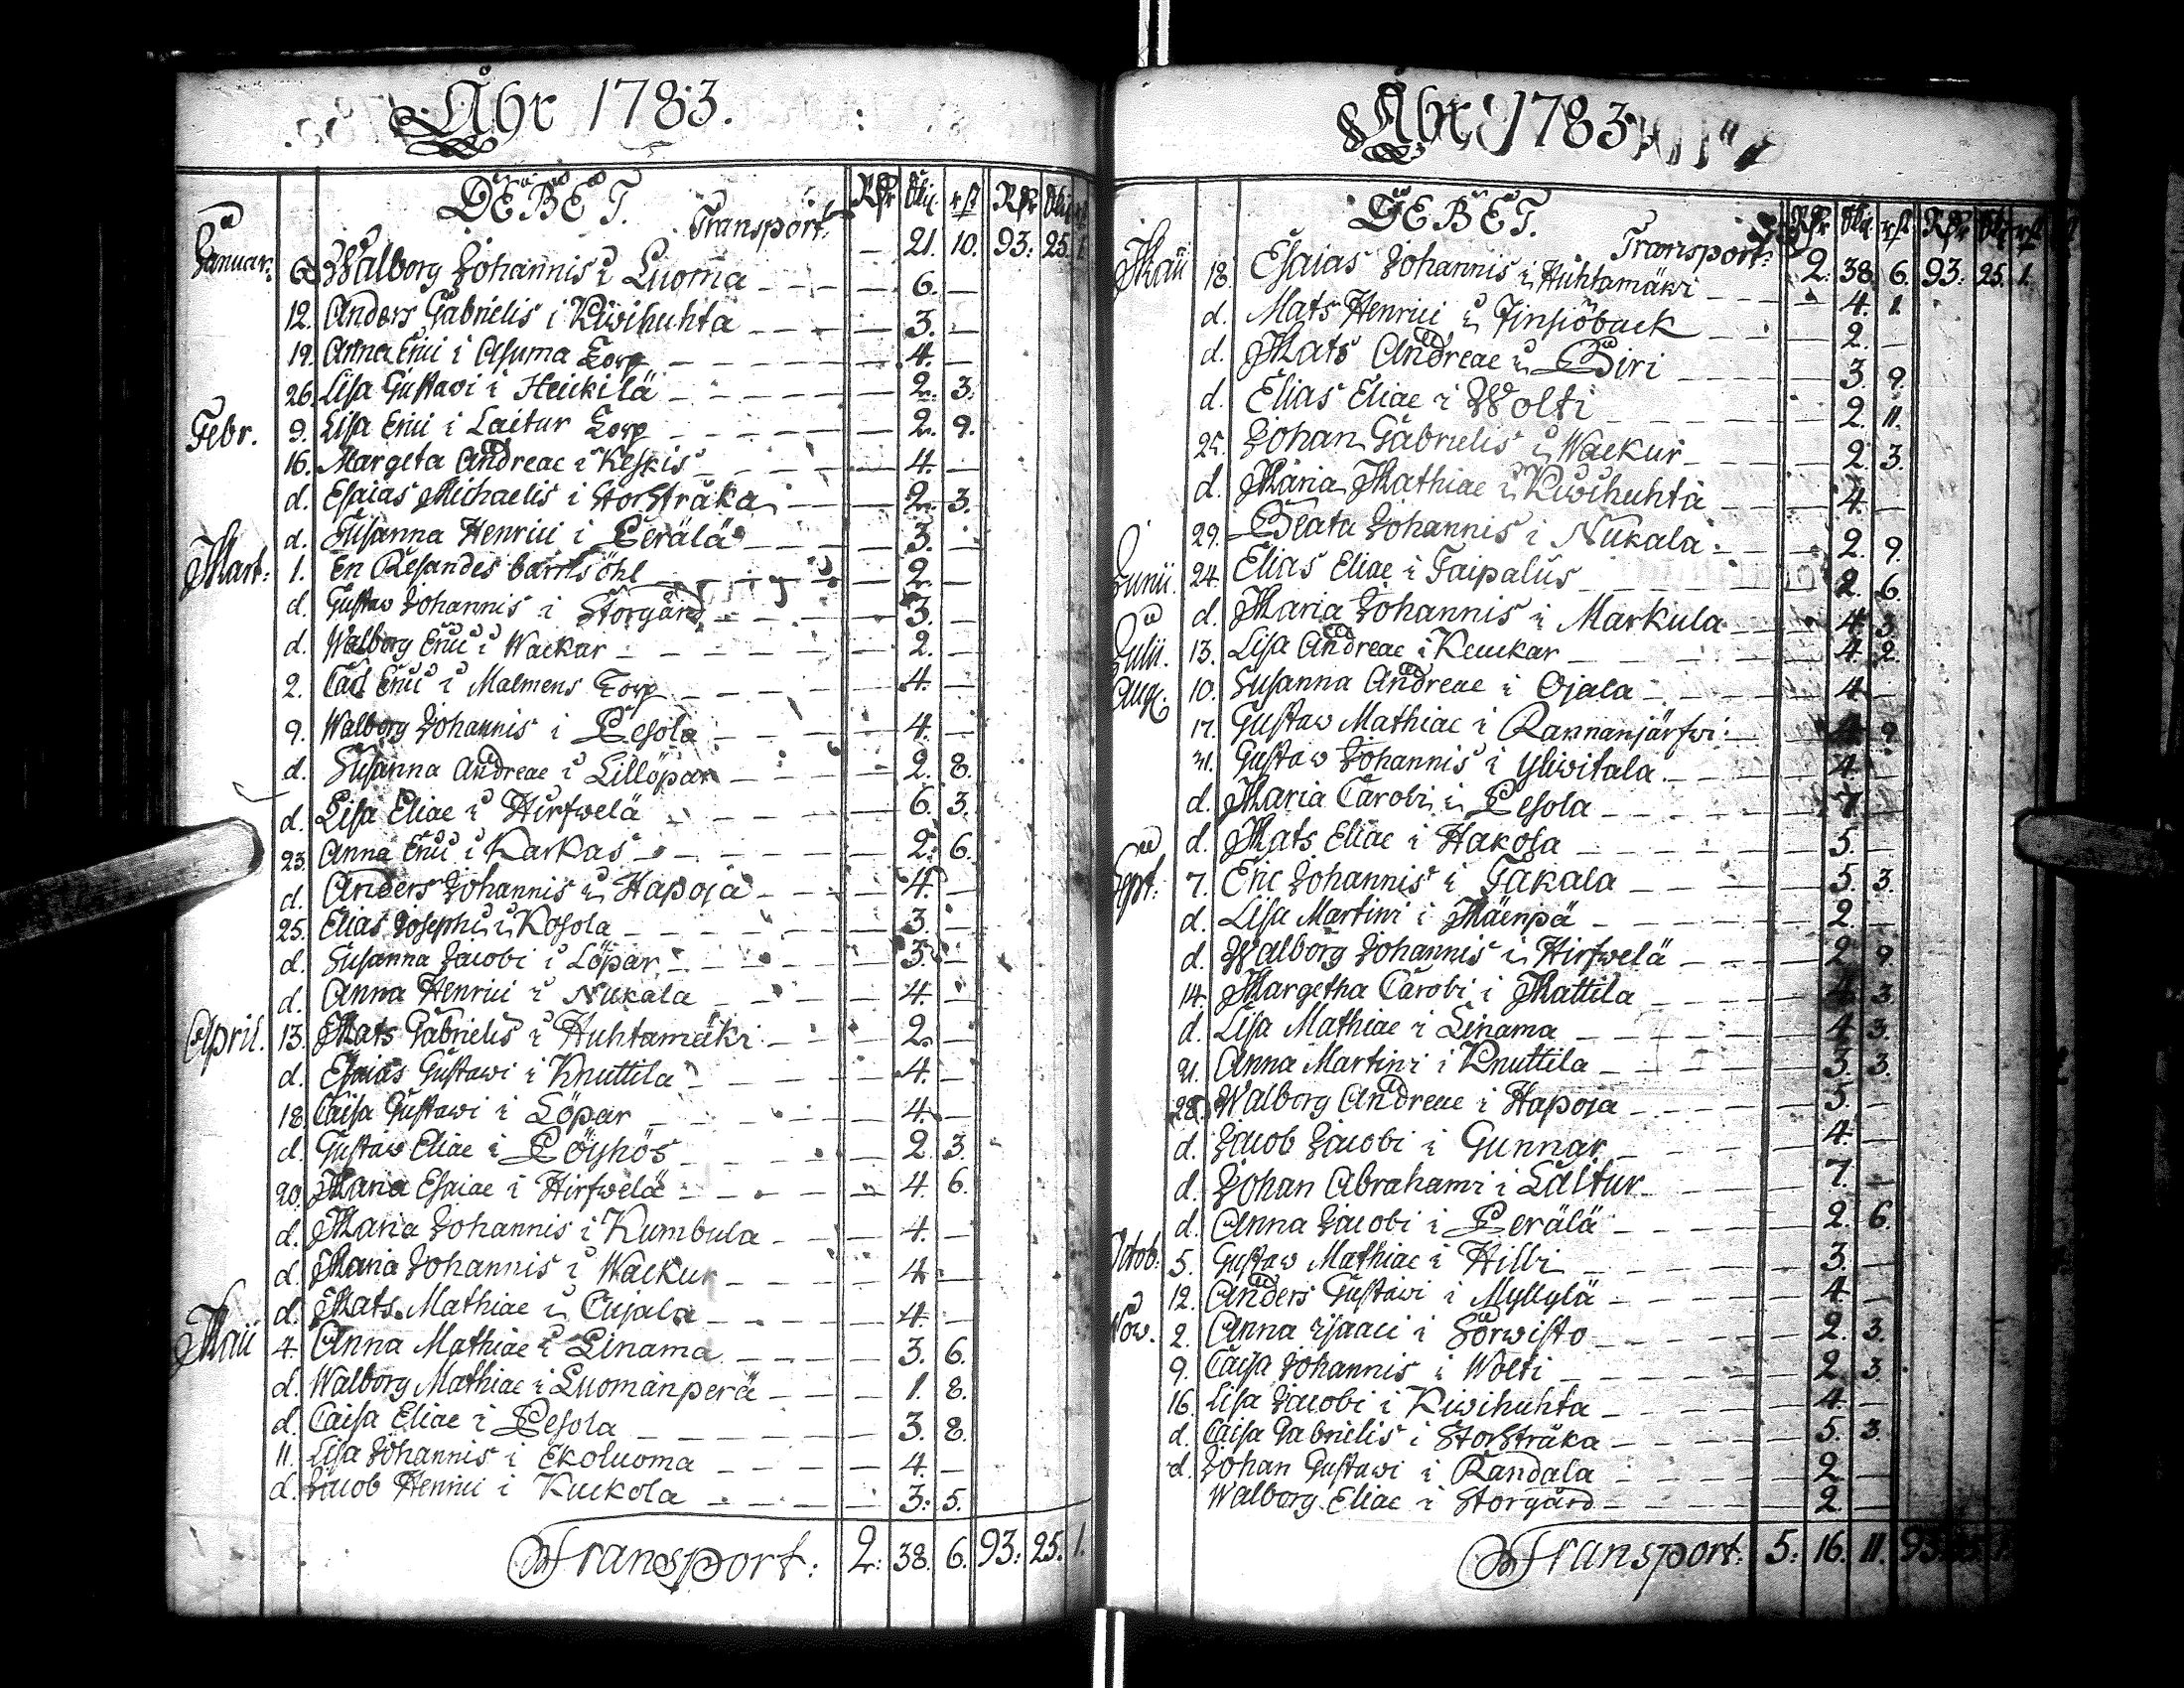 Åhr 1783.
DEBET. Rdr Skil. rst Rdr Skil
Transport: — 21. 10. 93: 25. 1.
Januar: 6. Walborg Johannis i Luoma — 6. —
12. Anders Gabrielis i Kiwihuhta — 3. —
19. Anna Erici i Asuma Torp — 4. —
26. Lisa Gustavi i Heickilä — 2. 3.
Febr. 9. Lisa Erici i Laitur Torp — 2. 9.
16. Margeta Andreae i Keskis — 4. —
d. Esaias Michaelis i Storstråka — 2. 3.
d. Susanna Henrici i Perälä — 3. —
Mart: 1. En Resandes barnsöhl — 2. —
d. Gustaw Johannis i Storgård — 3. —
d. Walborg Erici i Wackar — 2. —
2. Carl Erici i Malmens Torp — 4. —
9. Walborg Johannis i Pesola — 4. —
d. Susanna Andreae i Lillöpar — 2. 8.
d. Lisa Eliae i Hirfwelä — 6. 3.
23. Anna Erici i Karkas — 2. 6.
d. Anders Johannis i Hapoja — 4. —
25. Elias Josephi i Kosola — 3. —
d. Susanna Jacobi i Löpar — 3. —
d. Anna Henrici i Nukala — 4. —
April. 13. Mats Gabrielis i Huhtamäki — 2. —
d. Esaias Gustawi i Knuttila — 4. —
18. Caisa Gustawi i Löpar — 4. —
d. Gustaw Eliae i Pöyhös — 2. 3.
20. Maria Esaiae i Hirfwelä — 4. 6.
d. Maria Johannis i Kumbula — 4. —
d. Maria Johannis i Wackur — 4. —
d. Mats Mathiae i Cujala — 4. —
Maii 4. Anna Mathiae i Linama — 3. 6.
d. Walborg Mathiae i Luomanperä — 1. 8.
d. Caisa Eliae i Pesola — 3. 8.
11. Lisa Johannis i Ekoluoma — 4. —
d. Jacob Henrici i Kuckola — 3. 5.
Transport: 2. 38. 6. 93: 25. 1.
Åhr 1783
DEBET. Rdr Skil rst Rdr Skil rst
Transport: 2. 38. 6. 93: 25. 1.
Maii 18. Esaias Johannis i Huhtamäki — 4. 1.
d. Mats Henrici i Finsiöback — 2. —
d. Mats Andreae i Biri — 3. 9.
d. Elias Eliae i Wolti — 2. 11.
25. Johan Gabrielis i Wackur — 2. 3.
d. Maria Mathiae i Kiwihuhta — 4. —
29. Beata Johannis i Nukala — 2. 9.
Junii. 24. Elias Eliae i Taipalus — 2. 6.
d. Maria Johannis i Markula — 4. 3.
Julii. 13. Lisa Andreae i Keuckar — 4. 2.
Aug. 10. Susanna Andreae i Ojala — 4 —
17. Gustaw Mathiae i Rannanjärfwi — 4. 9.
31. Gustaw Johannis i Yliwitala — 4. —
d. Maria Carobi i Pesola — 7. —
d. Mats Eliae i Hakola — 5. —
Sept: 7. Eric Johannis i Takala — 5. 3.
d. Lisa Martini i Mäenpä — 2. —
d. Walborg Johannis i Hirfwelä — 2. 9.
14. Margetha Carobi i Mattila — 4. 3.
d. Lisa Mathiae i Linama — 4 3.
21. Anna Martini i Knuttila — 3. 3.
28. Walborg Andreae i Hapoja — 5. —
d. Jacob Jacobi i Gunnar — 4. —
d. Johan Abrahami i Laitur — 7. —
d. Anna Jacobi i Perälä — 2. 6.
Octob: 5. Gustaw Mathiae i Hilli — 3. —
12. Anders Gustawi i Myllylä — 4. —
Now. 2. Anna Isaaci i Sorwisto — 2. 3.
9. Caisa Johannis i Wolti — 2. 3.
16. Lisa Jacobi i Kiwihuhta — 4. —
d. Caisa Gabrielis i Storstråka — 5. 3.
d. Johan Gustawi i Randala — 2 —
Walborg Eliae i Storgård — 2. —
Transport: 5: 16. 11. 93: